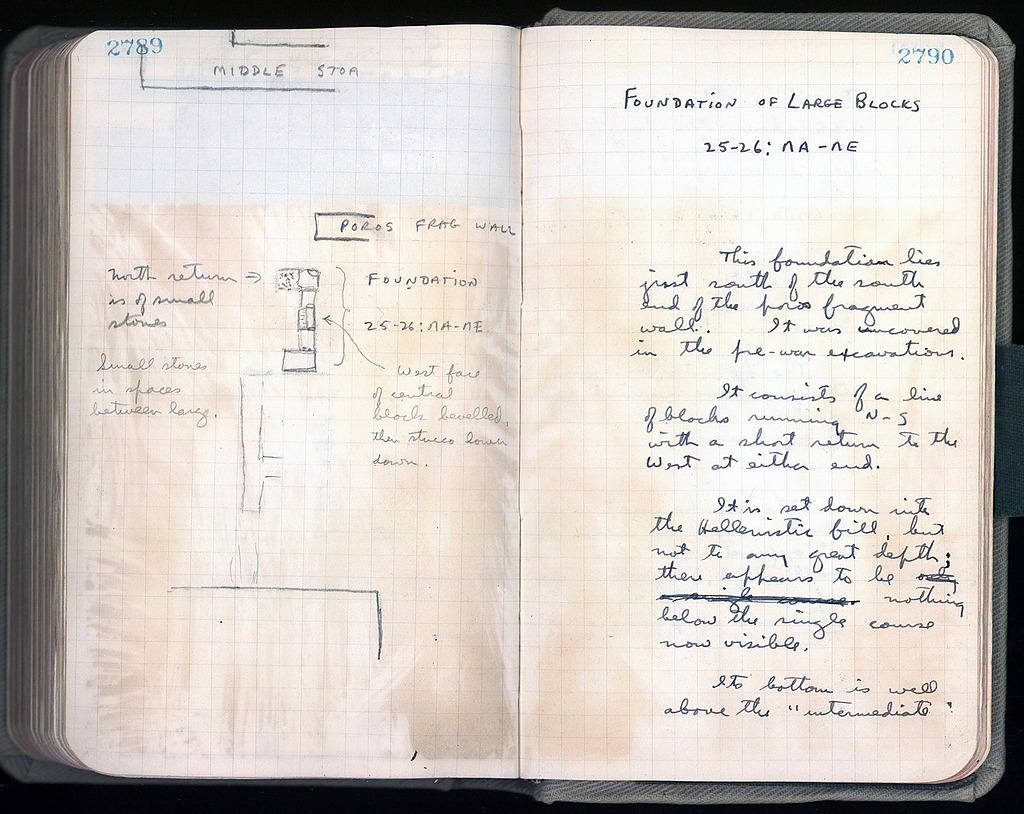 2789
MIDDLE STOA
POROS FRAG WALL
north return →
is of small
stones
Small stones
in spaces
between large.
FOUNDATION
25-26: ΠΑ-ΠΕ
West face
of central
block bevelled,
then stucco lower
down.
2790
FOUNDATION OF LARGE BLOCKS
25-26: ΠΑ-ΠΕ
This foundation lies
just south of the south
end of the poros fragment
wall. It was uncovered
in the pre-war excavations.
It consists of a line
of blocks running N-S
with a short return to the
West at either end.
It is set down into
the Hellenistic fill, but
not to any great depth;
there appears to be only
a single course. nothing
below the single course
now visible.
Its bottom is well
above the "intermediate"